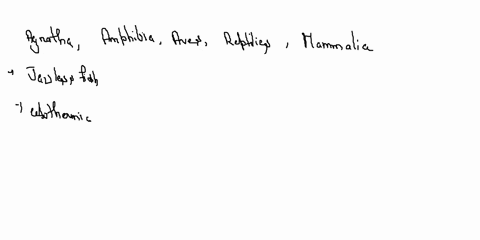 Agnatha, Amphibia, Aves, Reptiles, Mammalia
→ Jawless fish
→ ectothermic